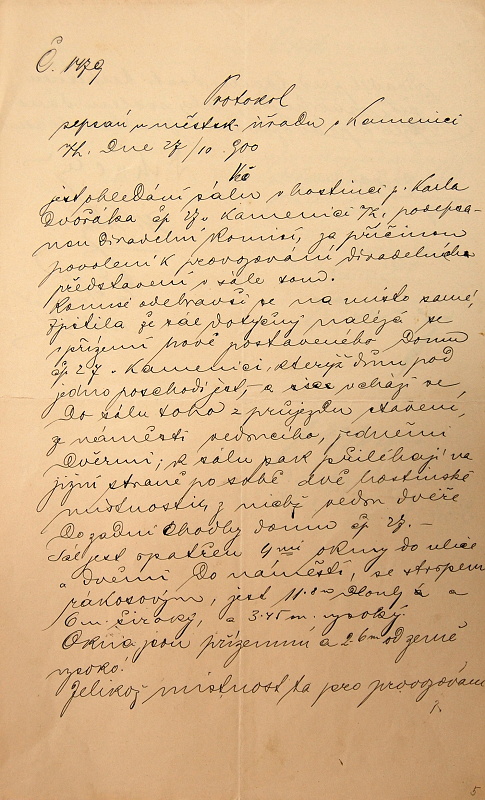 Č. 1479
Protokol
sepsaný u městsk. úřadu v Kamenici
n/L. Dne 27/10 900
Ke
jest ohledání sálu v hostinci p. Karla
Dvořáka čp 27 v Kamenici n/L. podepsa-
nou divadelní komisí, za příčinou
povolení k provozování divadelních
představení v sále tom.
Komise odebravši se na místo samé,
zjistila že sál dotyčný nalézá se
v přízemí nově postaveného domu
čp 27 v Kamenici, kterýž dům pod
jedno poschodí jest, a sice vchází se
Do sálu toho z průjezdu stavení,
z náměstí vedoucího, jedněmi
Dveřmi; k sálu pak přiléhají na
jižní straně po sobě dvě hostinské
místnosti, z nichž vedou dvéře
Do zadní chodby domu čp 27. –
Sál jest opatřen 4mi okny do ulice
a dvěmi Do náměstí, se stropem
rákosovým, jest 11.80 dlouhý a
6 m. široký, a 3.45 m. vysoký.
Okna jsou přízemní a 2.6 m od země
vysoko.
Jelikož místnost ta pro provozování
5